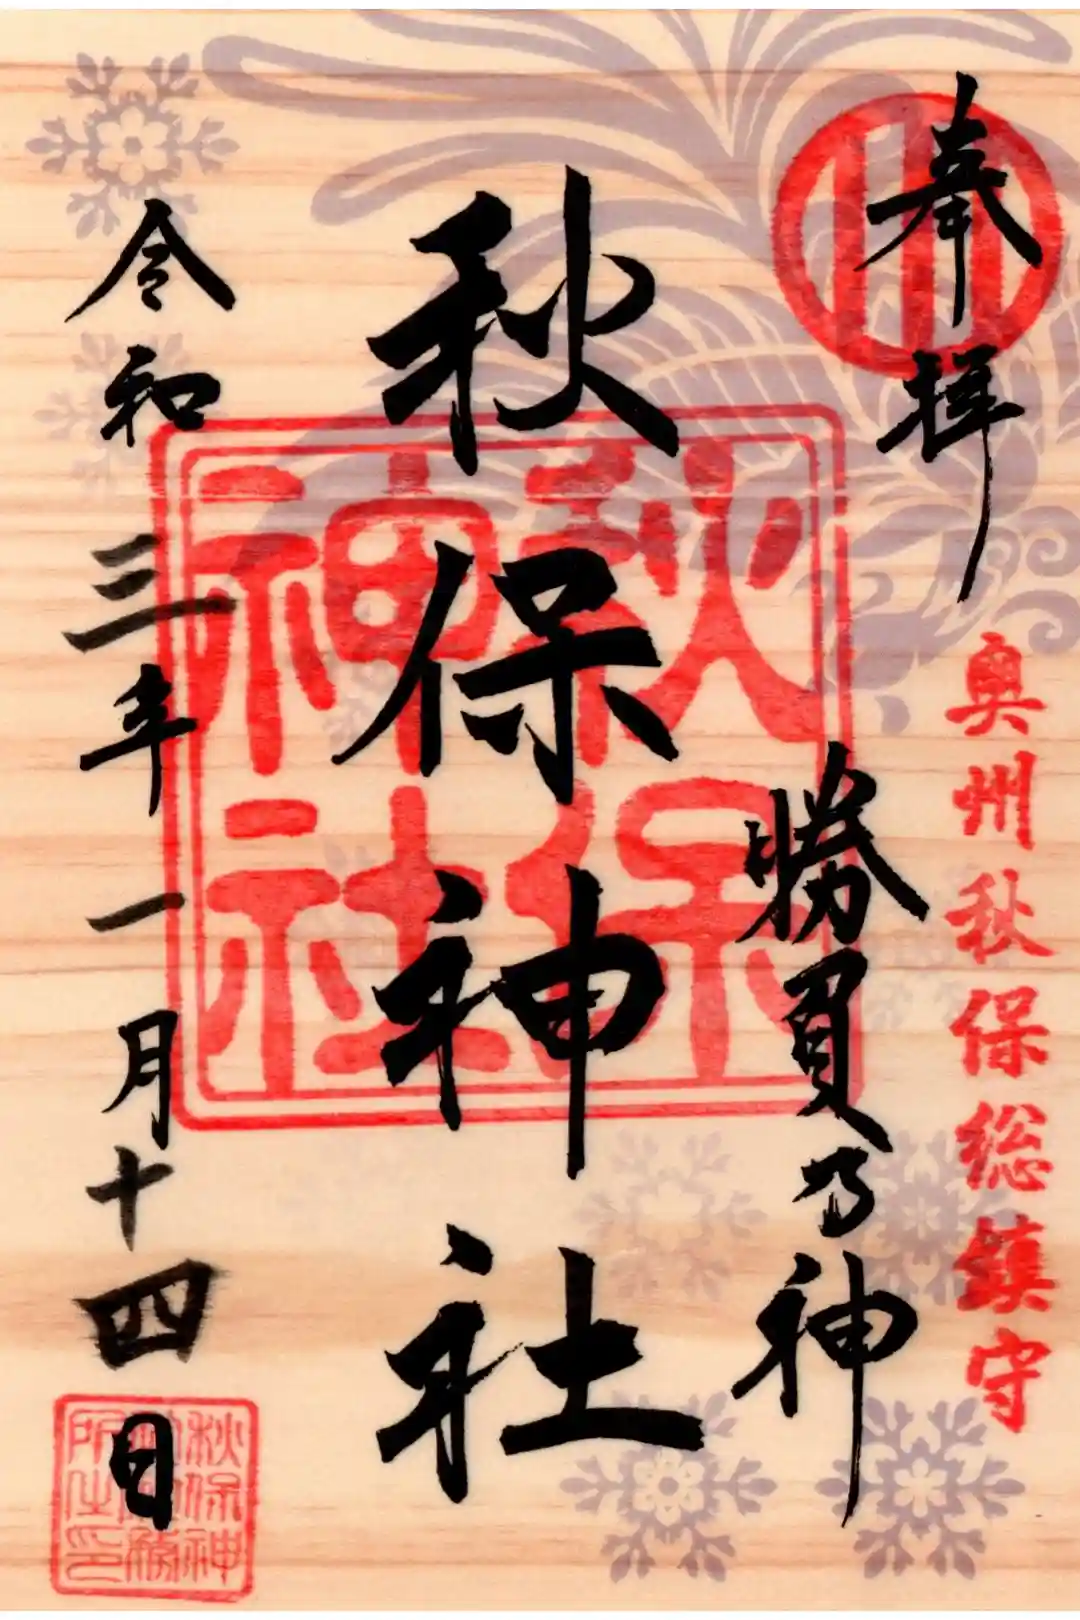 奉拝
奥州秋保総鎮守
勝負乃神
秋保神社
秋保
神社
令和三年一月十四日
秋保神
所之印